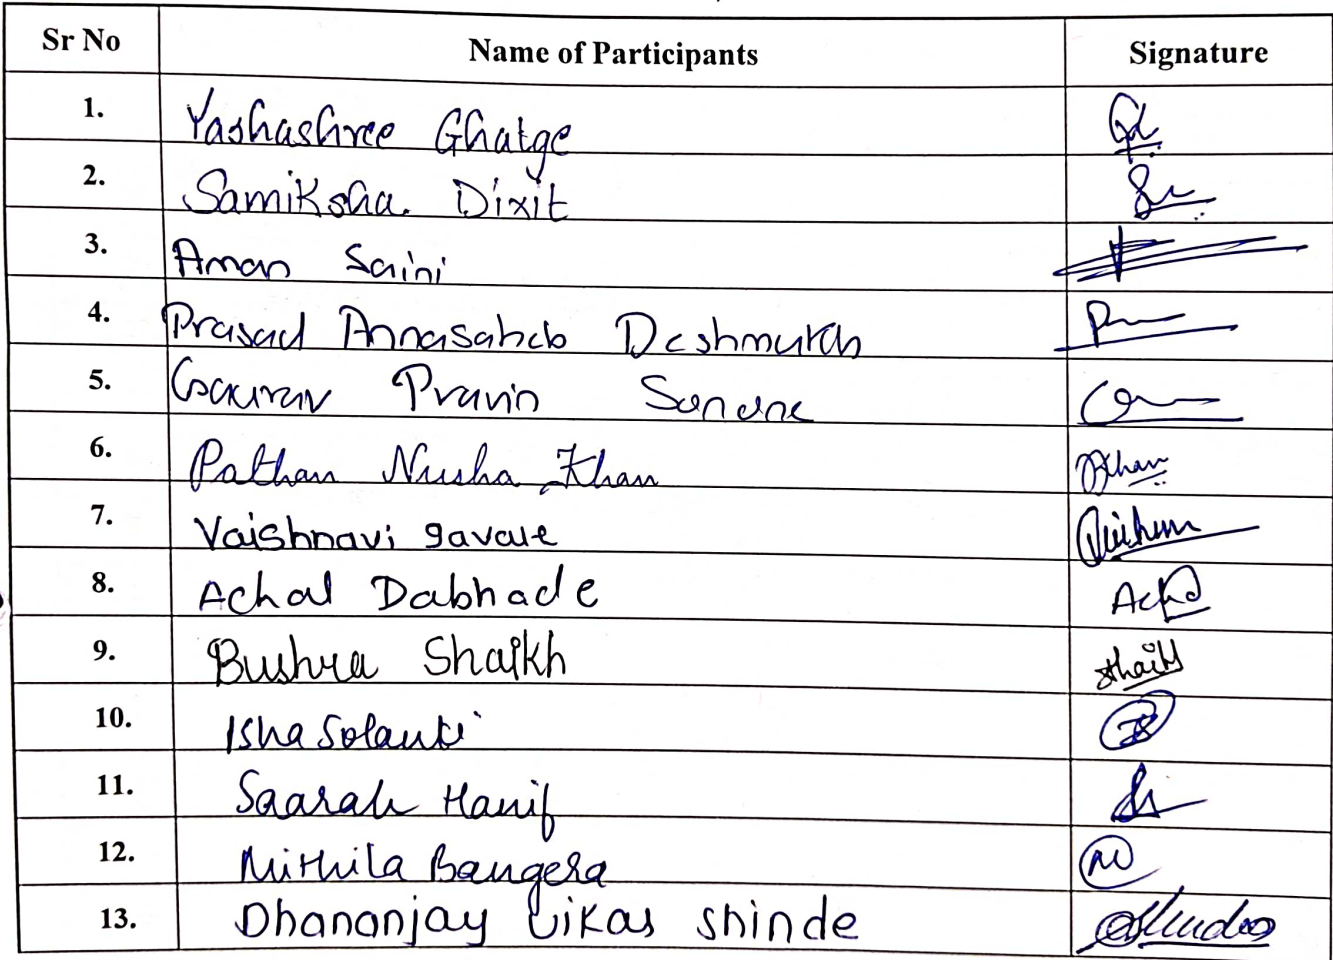 Sr No Name of Participants Signature
1. Yashashree Ghatge
2. Samiksha. Dixit
3. Aman Saini
4. Prasad Annasaheb Deshmukh
5. Gaurav Pravin Sonone
6. Pathan Nusha Khan Khan
7. Vaishnavi gavale
8. Achal Dabhade Achal
9. Bushra Shaikh Shaikh
10. Isha Solanki
11. Saarah Hanif
12. Mithila Bangera
13. Dhananjay Vikas Shinde